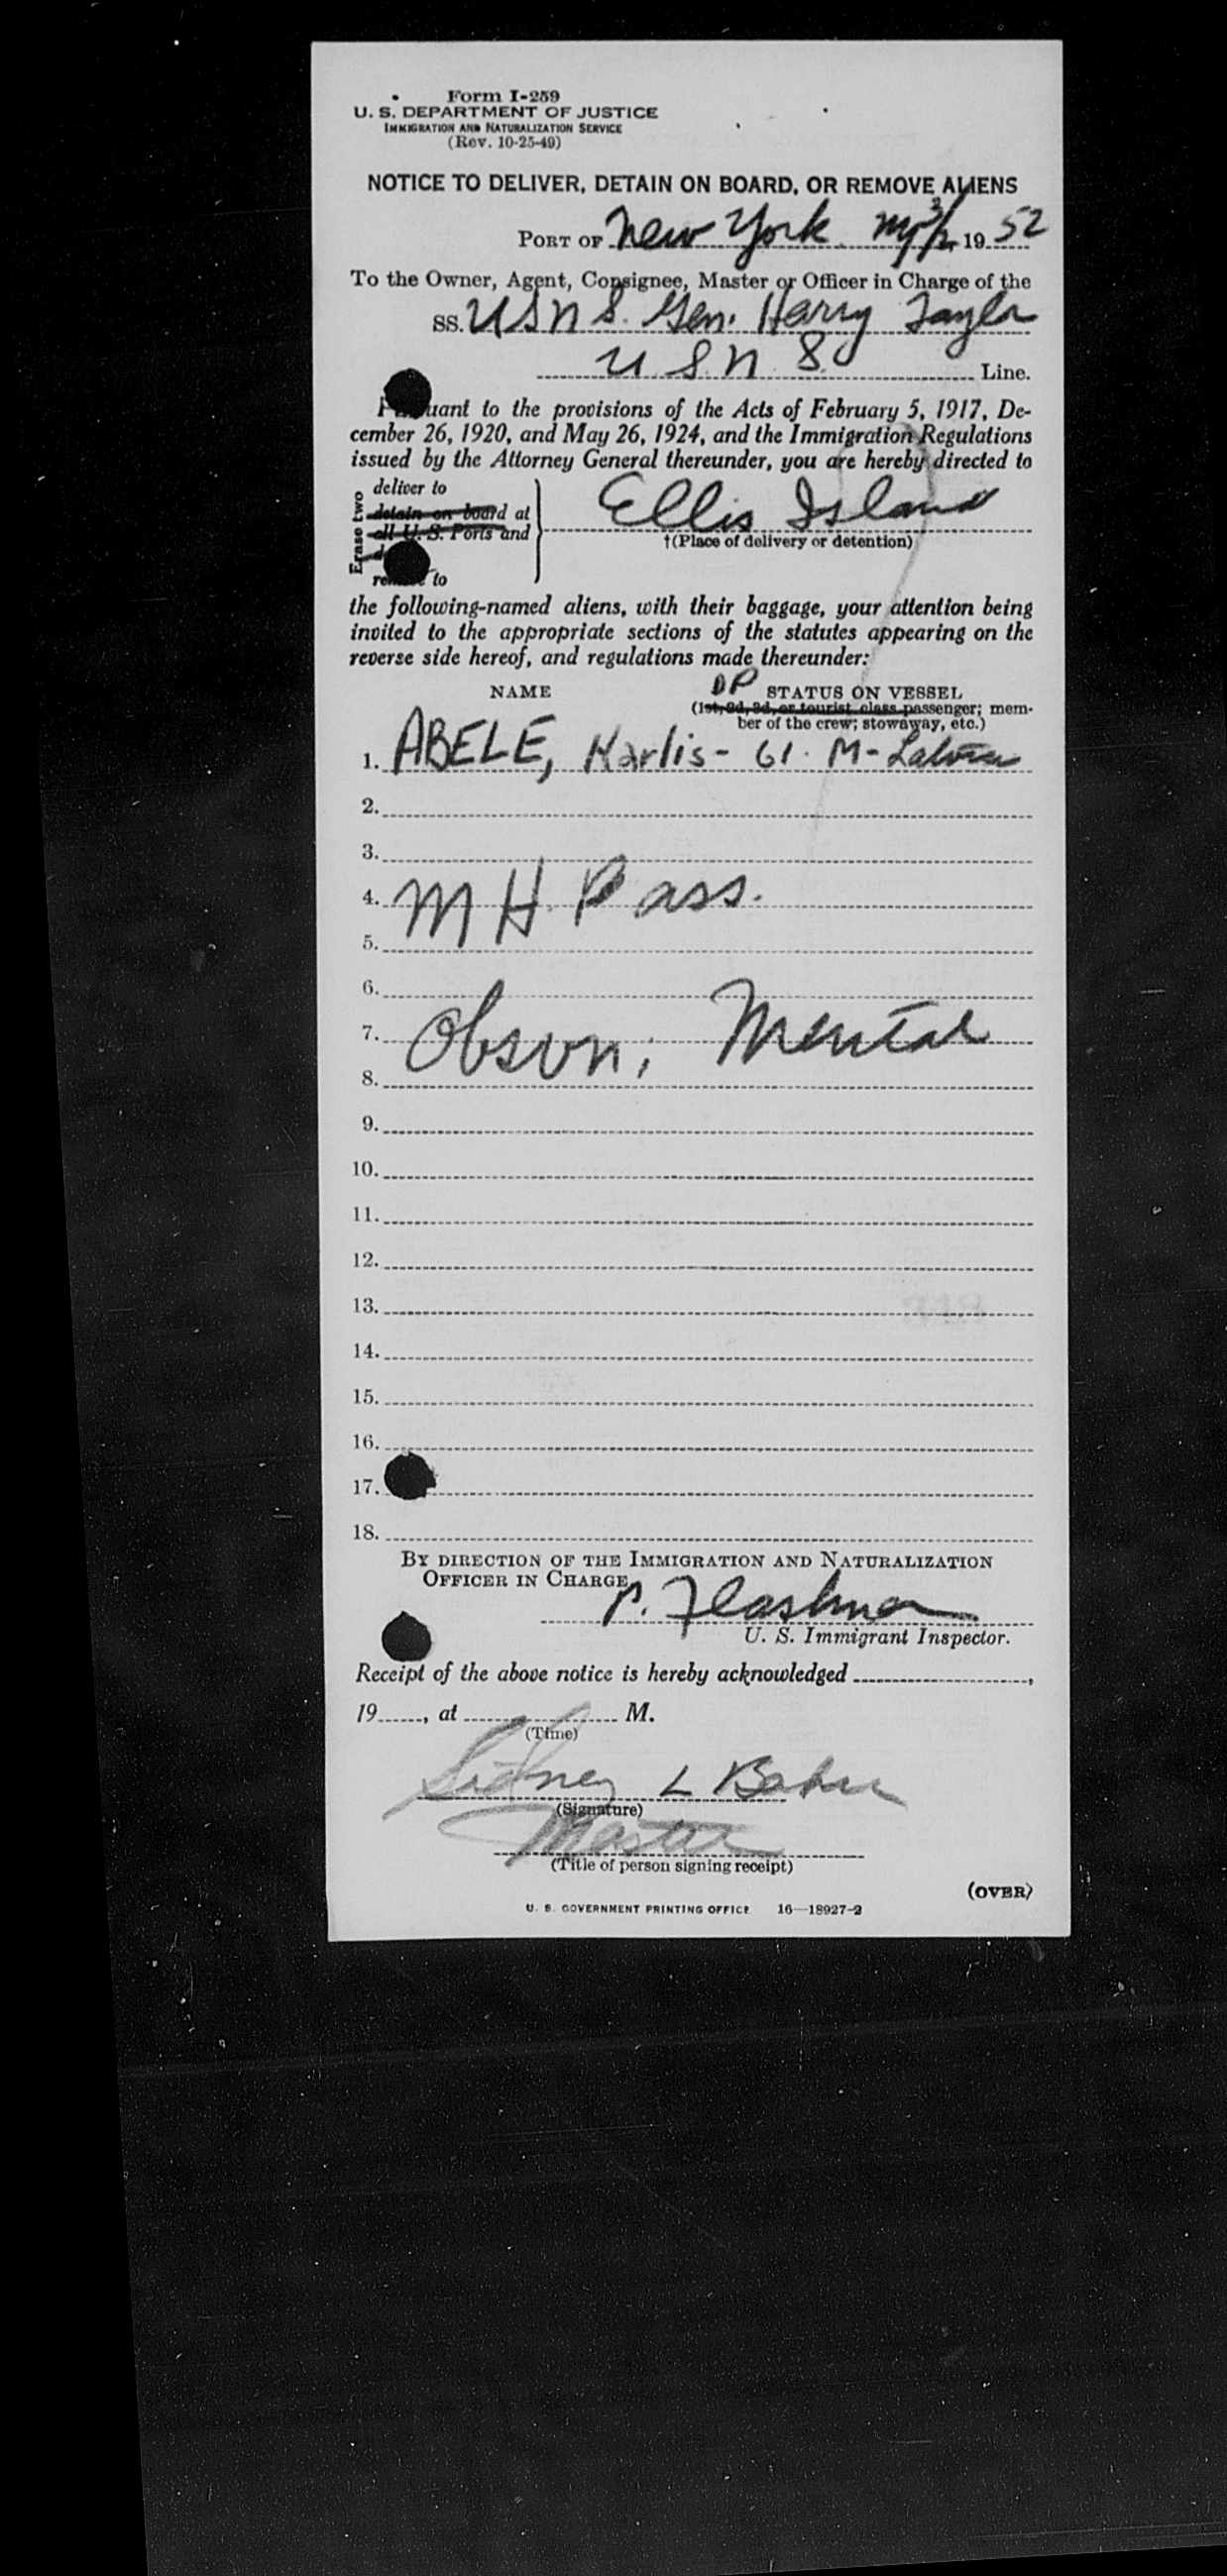 Form I-259
U. S. DEPARTMENT OF JUSTICE
IMMIGRATION AND NATURALIZATION SERVICE
(Rev. 10-25-49)
NOTICE TO DELIVER, DETAIN ON BOARD, OR REMOVE ALIENS
PORT OF New York 19 52
To the Owner, Agent, Consignee, Master or Officer in Charge of the
SS. USNS. Gen. Harry Taylor
U S N S. Line.
Pursuant to the provisions of the Acts of February 5, 1917, De-
cember 26, 1920, and May 26, 1924, and the Immigration Regulations
issued by the Attorney General thereunder, you are hereby directed to
Erase two
deliver to
detain on board at
all U. S. Ports and
remove to
Ellis Island
†(Place of delivery or detention)
the following-named aliens, with their baggage, your attention being
invited to the appropriate sections of the statutes appearing on the
reverse side hereof, and regulations made thereunder:
NAME DP STATUS ON VESSEL
(1st, 2d, 3d, or tourist class passenger; mem-
ber of the crew; stowaway, etc.)
1. ABELE, Karlis - 61. M - Latvia
2.
3.
4. M H. Pass.
5.
6.
7. Obsvn; Mental
8.
9.
10.
11.
12.
13.
14.
15.
16.
17.
18.
BY DIRECTION OF THE IMMIGRATION AND NATURALIZATION
OFFICER IN CHARGE
P. Flashman
U. S. Immigrant Inspector.
Receipt of the above notice is hereby acknowledged ,
19 , at M.
(Time)
Sidney L
(Signature)
Master
(Title of person signing receipt)
(OVER)
U. S. GOVERNMENT PRINTING OFFICE 16—18927-2